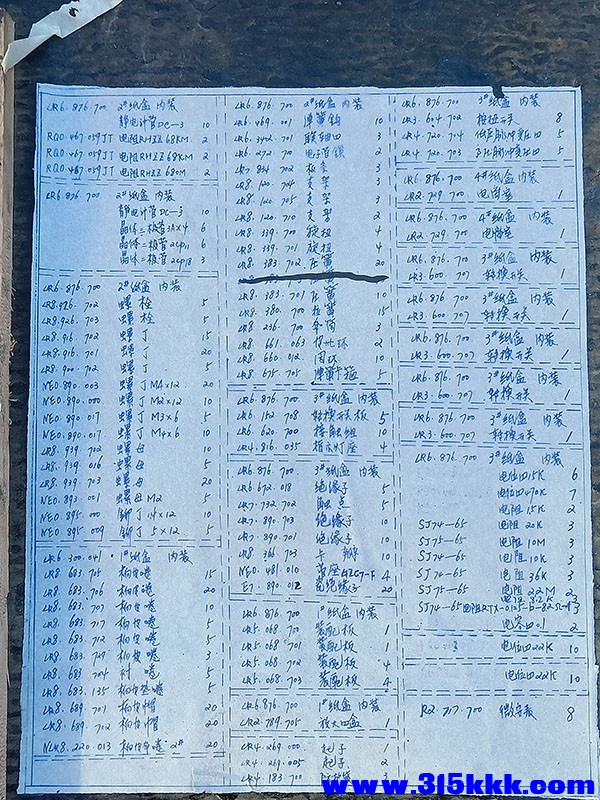 LR6.876.700 2#纸盒 内装
静电计管DC-3 10
RQ0.467.059JT 电阻RHZZ68KM 2
RQ0.467.059JT 电阻RHZZ68KM 2
RQ0.467.059JT 电阻RHZZ680M 2
LR6.876.700 2#纸盒 内装
静电计管DC-3 10
晶体二极管3AX4 6
晶体二极管2CP11 6
晶体二极管2CP18 3
LR6.876.700 2#纸盒 内装
LR8.926.702 螺栓 5
LR8.926.703 螺栓 5
LR8.916.702 螺丁 15
LR8.916.701 螺丁 20
LR8.900.702 螺丁 5
NE0.890.003 螺丁M4×12 20
NE0.890.000 螺丁M2×12 10
NE0.890.017 螺丁M3×6 5
NE0.890.017 螺丁M4×6 10
LR8.939.702 螺母 10
LR8.939.016 螺母 5
LR8.939.703 螺母 20
NE0.893.001 螺母M2 5
NE0.895.000 铆丁4×12 10
NE0.895.009 铆丁5×12 5
LR6.300.041 1#纸盒 内装
LR8.683.705 15
LR8.683.706 20
LR8.683.707 10
LR8.683.717 5
LR8.683.712 5
LR8.683.729 3
LR8.683.704 衬 5
LR8.683.135 5
LR8.689.701 帽 20
LR8.689.702 帽 20
NLR8.220.013 2# 20
LR6.876.700 2#纸盒 内装
LR6.469.001 弹簧钩 10
LR6.342.701 3
LR6.272.700 电子管锁 2
LR7.834.702 3
LR8.120.704 支架 3
LR8.120.705 支架 3
LR8.120.710 支架 2
LR8.339.700 旋扭 4
LR8.339.701 旋扭 4
LR8.383.702 压簧 20
LR8.383.701 压簧 10
LR8.380.700 拉簧 15
LR8.236.700 3
LR8.661.063 环 2
LR8.660.012 环 10
LR8.675.705 弹簧 5
LR6.876.700 3#纸盒 内装
LR6.152.708 转换开关板 5
LR6.620.700 接触组 10
LR4.816.035 指示灯座 4
LR6.876.700 3#纸盒 内装
LR6.672.018 绝缘子 5
LR7.732.702 触点 5
LR7.890.703 绝缘子 10
LR7.890.701 绝缘子 10
LR8.366.703 卡 10
NE0.481.010 管座GZC7-F 4
E7.890.012 瓷绝缘子 20
LR6.876.700 1#纸盒 内装
LR5.068.700 装配板 1
LR5.068.701 装配板 1
LR5.068.702 装配板 4
LR5.068.703 装配板 4
LR6.876.700 1#纸盒 内装
LR2.789.705 放大四盒 1
LR4.269.000 起子 1
LR4.269.005 起子 2
LR4.183.700 3
LR6.876.700 3#纸盒 内装
LR3.604.702 按扭开关 8
LR4.720.704 低压脉冲变压四 5
LR4.720.703 高压脉冲变压四 5
LR6.876.700 4#纸盒 内装
LR2.729.700 电离室 1
LR6.876.700 4#纸盒 内装
LR2.729.700 电离室 1
LR6.876.700 3#纸盒 内装
LR3.600.707 转换开关 1
LR6.876.700 3#纸盒 内装
LR3.600.707 转换开关 1
LR6.876.700 3#纸盒 内装
LR3.600.707 转换开关 1
LR6.876.700 3#纸盒 内装
LR3.600.707 转换开关 1
LR6.876.700 3#纸盒 内装
LR3.600.707 转换开关 1
LR6.876.700 3#纸盒 内装
电位四15K 6
电位四470K 7
电阻15K 2
SJ74-65 电阻20K 3
SJ75-65 电阻10M 3
SJ74-65 电阻10K 3
SJ74-65 电阻36K 3
SJ75-65 电阻22M 2
电阻8.2K 3
SJ74-65 电阻RTX-0.125-b-82 3
电容0.1 2
电位四22K 10
电位四22K 10
R2.717.700 微安表 8
www.315kkk.com